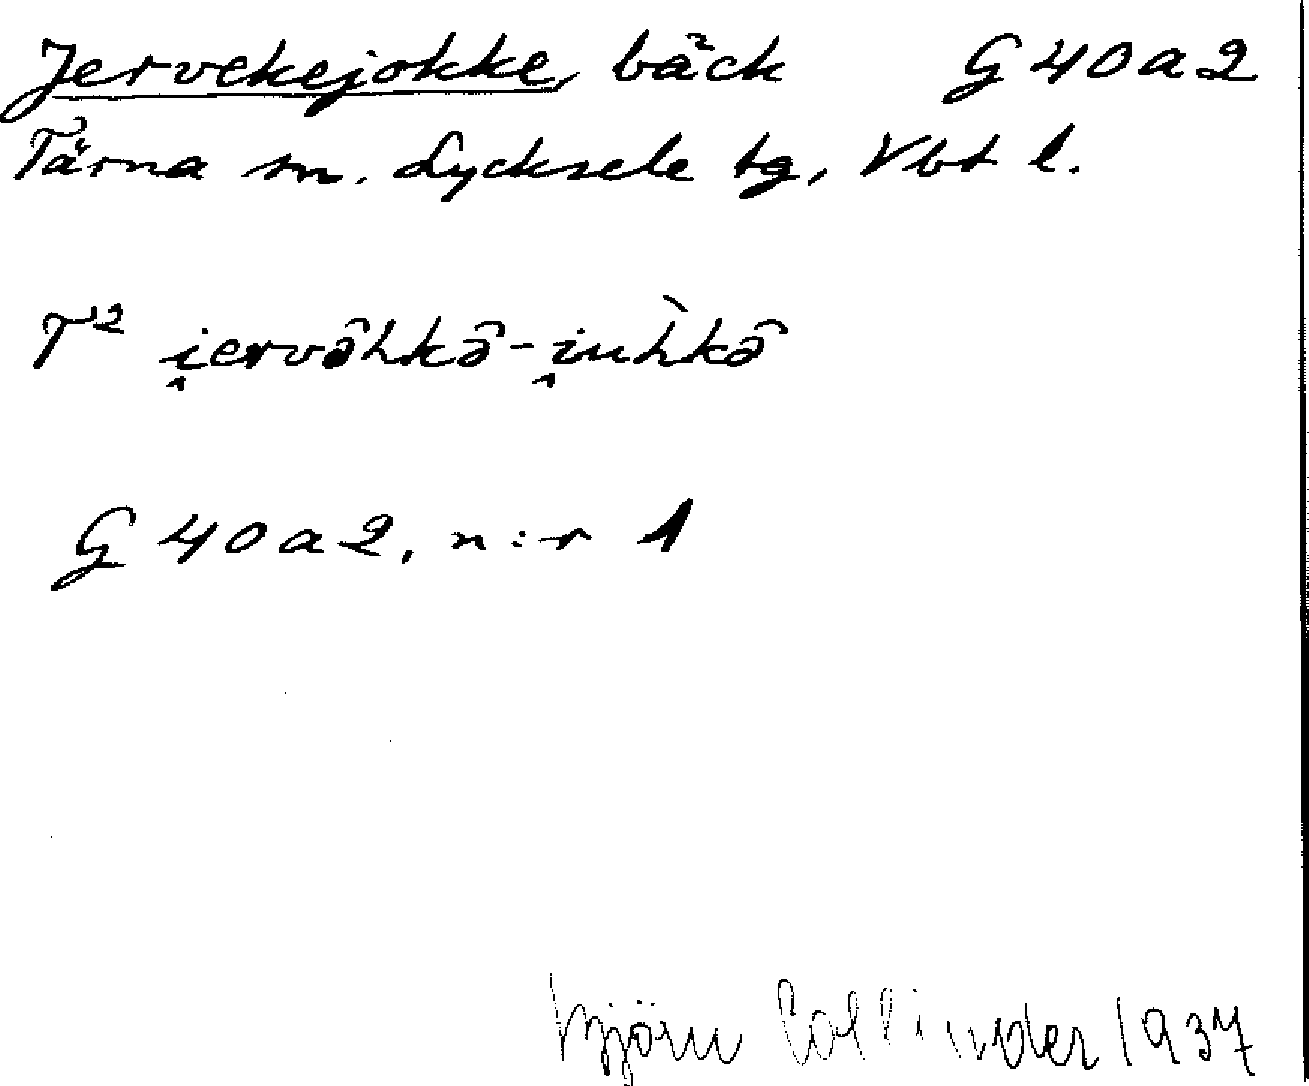 Jervekejokke, bäck G40a2
Tärna sn. Lycksele tg, Vbt l.
T² i̭ervə̂hkə̂-i̭uh̀kə̂
G 40a2, n:r 1
björn Collinder 1937